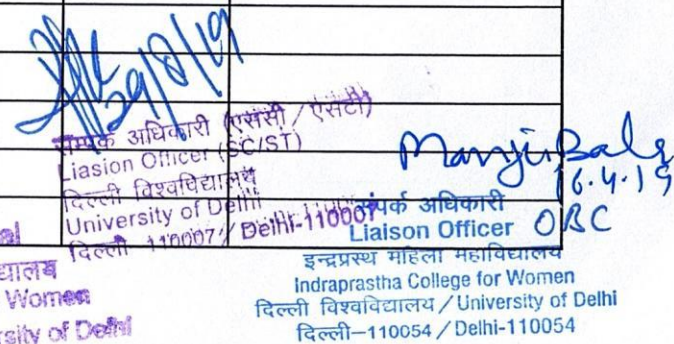 29/8/19
सम्पर्क अधिकारी (एससी / एसटी)
Liasion Officer (SC/ST)
दिल्ली विश्वविद्यालय
University of Delhi
दिल्ली-110007 / Delhi-110007
Bala
16.4.19
संपर्क अधिकारी
Liaison Officer OBC
इन्द्रप्रस्थ महिला महाविद्यालय
Indraprastha College for Women
दिल्ली विश्वविद्यालय / University of Delhi
दिल्ली–110054 / Delhi-110054
Women
of Delhi